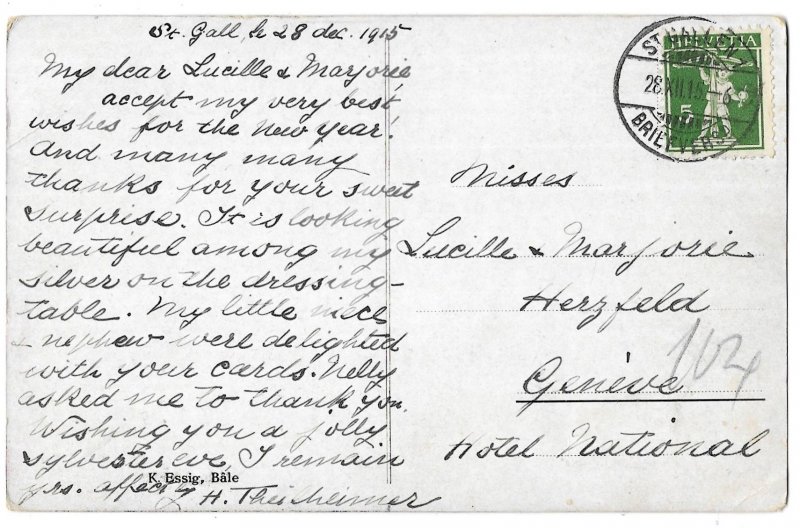 St. Gall, le 28 dec. 1915
My dear Lucille & Marjorie,
accept my very best
wishes for the New Year!
And many many
thanks for your sweet
surprise. It is looking
beautiful among my
silver on the dressing-
table. My little niece
& nephew were delighted
with your cards. Nelly
asked me to thank you.
Wishing you a jolly
sylvester eve, I remain
yrs. affectly
H. Theisheimer
K. Essig, Bâle
HELVETIA
5
ST. GALLEN
28.XII.15.
BRIEFVERS
Misses
Lucille & Marjorie
Herzfeld
Genève
Hotel National